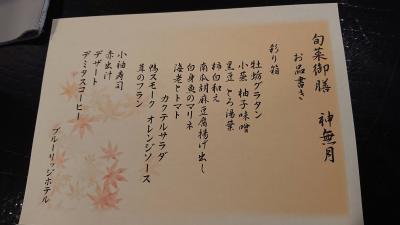 旬菜御膳　神無月
お品書き
彩り箱
牡蛎グラタン
小蕪 柚子味噌
黒豆 とろ湯葉
柿白和え
南瓜胡麻豆腐揚げ出し
白身魚のマリネ
海老とトマト
カクテルサラダ
鴨スモーク オレンジソース
茸のフラン
小袖寿司
赤出汁
デザート
デミタスコーヒー
ブルーリッジホテル